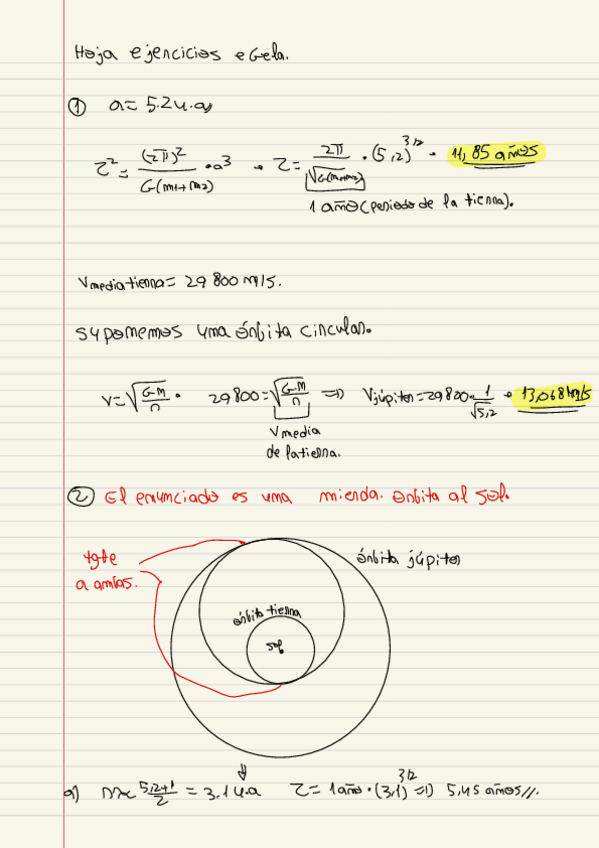 Hoja ejercicios eGela.
① a = 5.2 u.a
τ² = (2π)² / G(m1+m2) · a³ → τ = 2π / √G(m1+m2) · (5,2)^3/2 → 11,85 años
1 año (periodo de la tierra).
Vmedia tierra = 29 800 m/s.
Suponemos una órbita circular.
V = √(G·M/r) · 29 800 = √(G·M/r) => Vjúpiter = 29 800 · 1/√5,2 → 13,068 km/s
Vmedia
de la tierra.
② El enunciado es una mierda. Orbita al sol.
tgte
a ambas.
órbita júpiter
órbita tierra
sol
a) (5,2+1)/2 = 3.1 u.a τ = 1 año · (3,1)^3/2 => 5,45 años//.